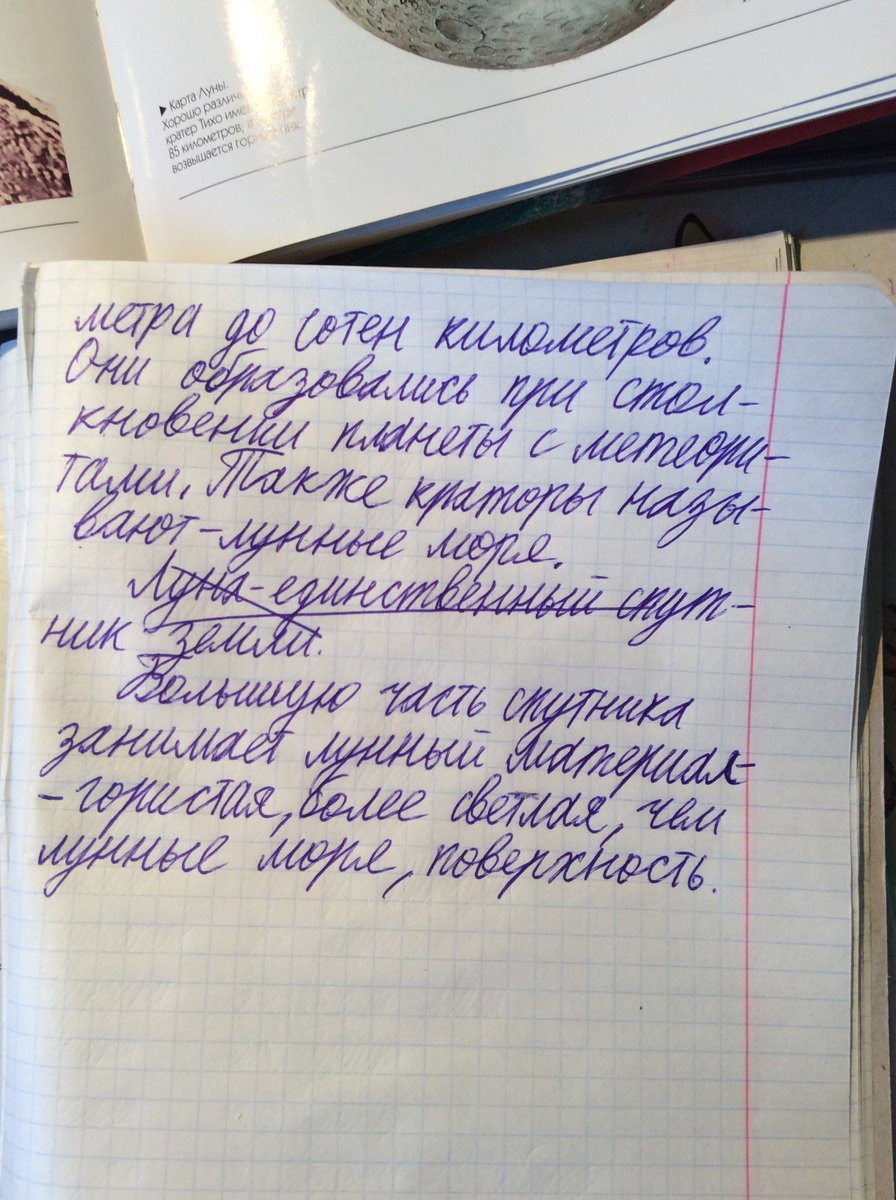 ▶ Карта Луны.
Хорошо
кратер Тихо
85 километров;
возвышается
метра до сотен километров.
Они образовались при стол-
кновении планеты с метеори-
тами. Также краторы назы-
вают-лунные моря.
Луна-единственный спут-
ник земли.
Большую часть спутника
занимает лунный материал-
-гористая, более светлая, чем
лунные моря, поверхность.